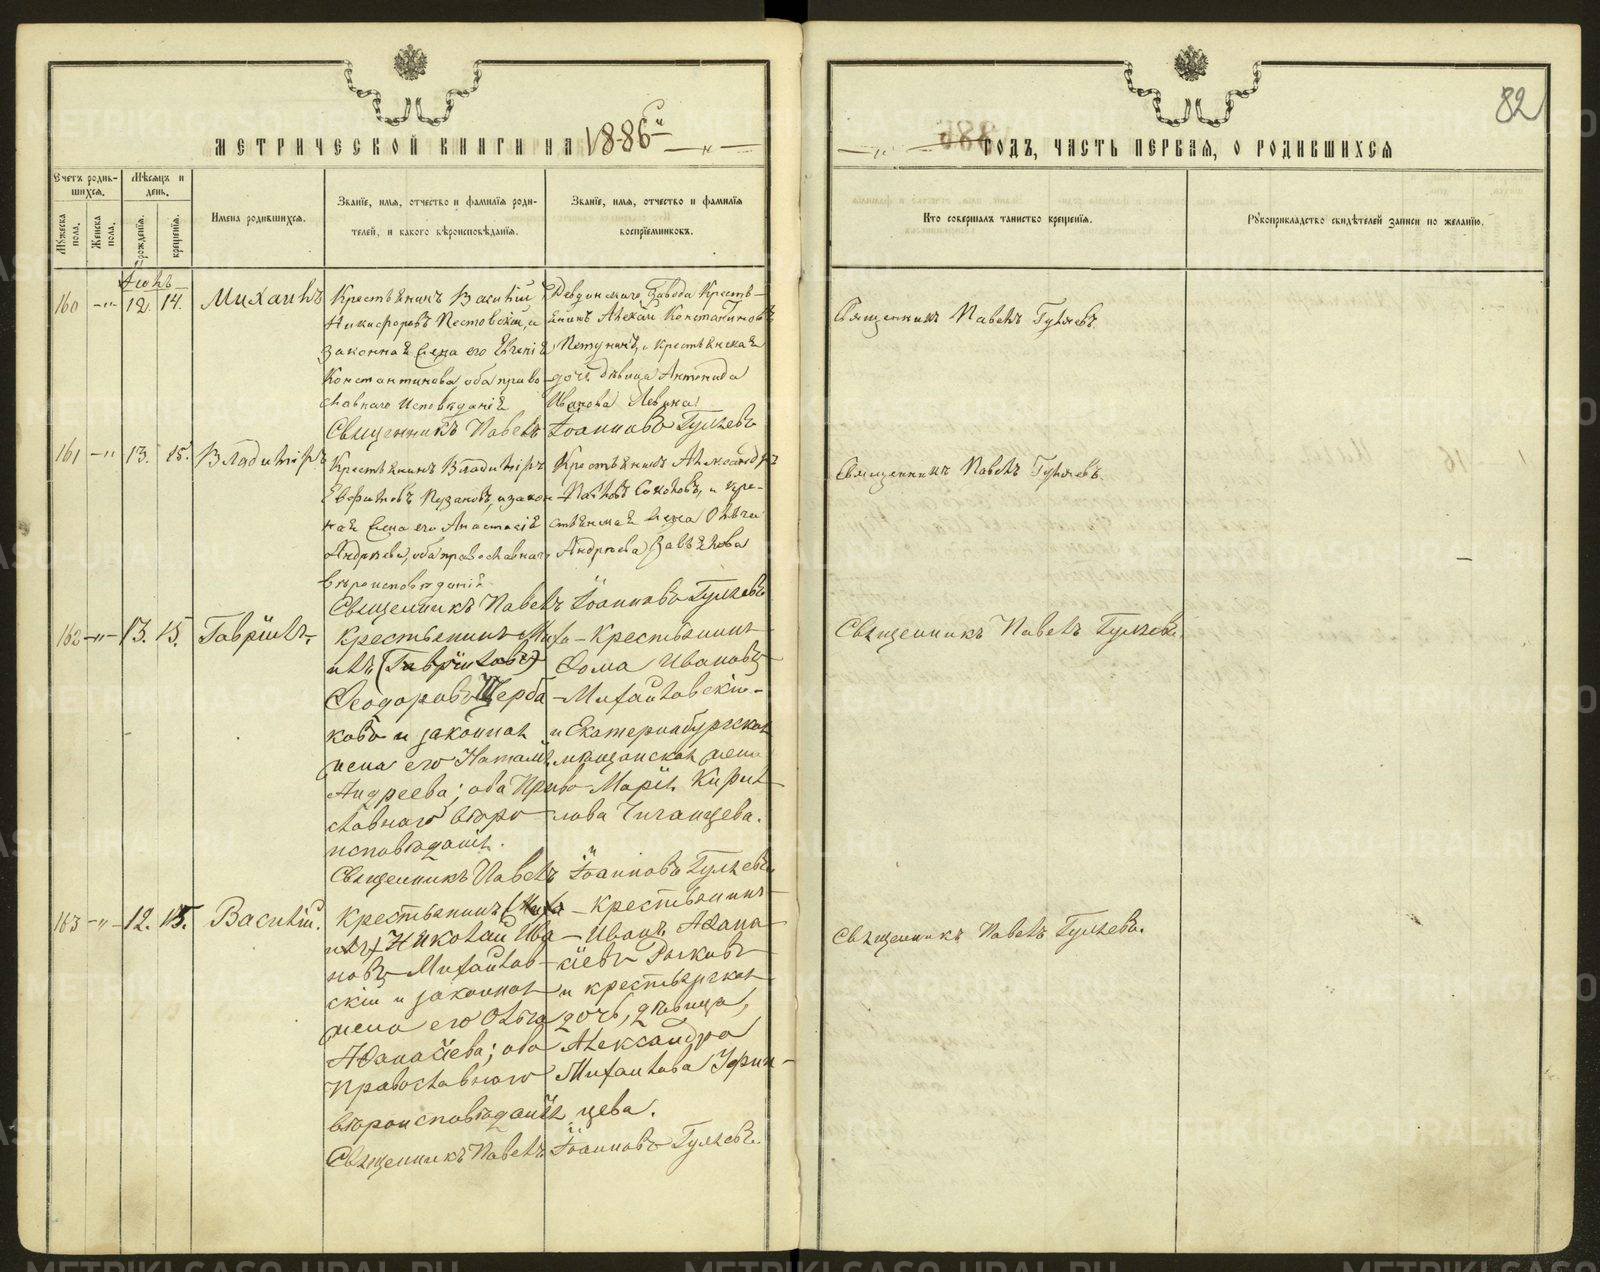 82
МЕТРИЧЕСКОЙ КНИГИ НА 1886й
ГОДЪ, ЧАСТЬ ПЕРВАЯ, О РОДИВШИХСЯ
Счетъ родив-
шихся.
Мужеска
пола.
Женска
пола.
Мѣсяцъ и
день.
рожденія.
крещенія.
Имена родившихся.
Званіе, имя, отчество и фамилія роди-
телей, и какого вѣроисповѣданія.
Званіе, имя, отчество и фамилія
воспріемниковъ.
Кто совершалъ таинство крещенія.
Рукоприкладство свидѣтелей записи по желанію.
160 -"- 12. 14. Михаилъ
Крестьянинъ Василій
Никифоровъ Пестовскій, и
законная жена его Евгенія
Константинова, оба право-
славнаго исповѣданія
Ревдинскаго завода крестья-
нинъ Алексѣй Константиновъ
и крестьянская
дочь дѣвица Антонида
Иванова Левина
Священникъ Павелъ Гуляевъ
Священникъ Павелъ Іоанновъ Гуляевъ
161 -"- 13. 15. Владиміръ
Крестьянинъ Владиміръ
Евфимовъ Пузановъ, и закон-
ная жена его Анастасія
Андреева, оба православнаго
вѣроисповѣданія
Крестьянинъ Александръ
Павловъ Соколовъ, и кре-
стьянская жена Ольга
Андреева Завьялова
Священникъ Павелъ Гуляевъ.
Священникъ Павелъ Іоанновъ Гуляевъ
162 -"- 13. 15. Гавріилъ
Крестьянинъ Миха-
илъ (Гавріиловъ)
Феодоровъ Щерба-
ковъ и законная
жена его Наталія
Андреева; оба право-
славнаго вѣро-
исповѣданія.
Крестьянинъ
Фома Ивановъ
Михайловскій
и Екатеринбургская
мѣщанская жена
Марія Кирил-
лова Чиганцева.
Священникъ Павелъ Гуляевъ.
Священникъ Павелъ Іоанновъ Гуляевъ
163 -"- 12. 15. Василій.
Крестьянинъ (Миха-
илъ) Николай Ива-
новъ Михайлов-
скій и законная
жена его Ольга
Афанасіева; оба
православнаго
вѣроисповѣданія
Крестьянинъ
Иванъ Афана-
сіевъ
и крестьянская
дочь, дѣвица,
Александра
Михайлова Уфин-
цева.
Священникъ Павелъ Гуляевъ.
Священникъ Павелъ Іоанновъ Гуляевъ.
METRIKI.GASO-URAL.RU